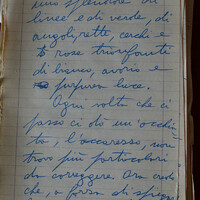 uno splendore di
luce e di verde, di
angoli, rette, cerchi e
rose trionfante
di bianco, avorio e
purpurea luce.
Ogni volta che ci
passo ci do un'occhia
ta, l'accarezzo, non
trovo più particolari
da correggere. Ora credo
che, a forza di